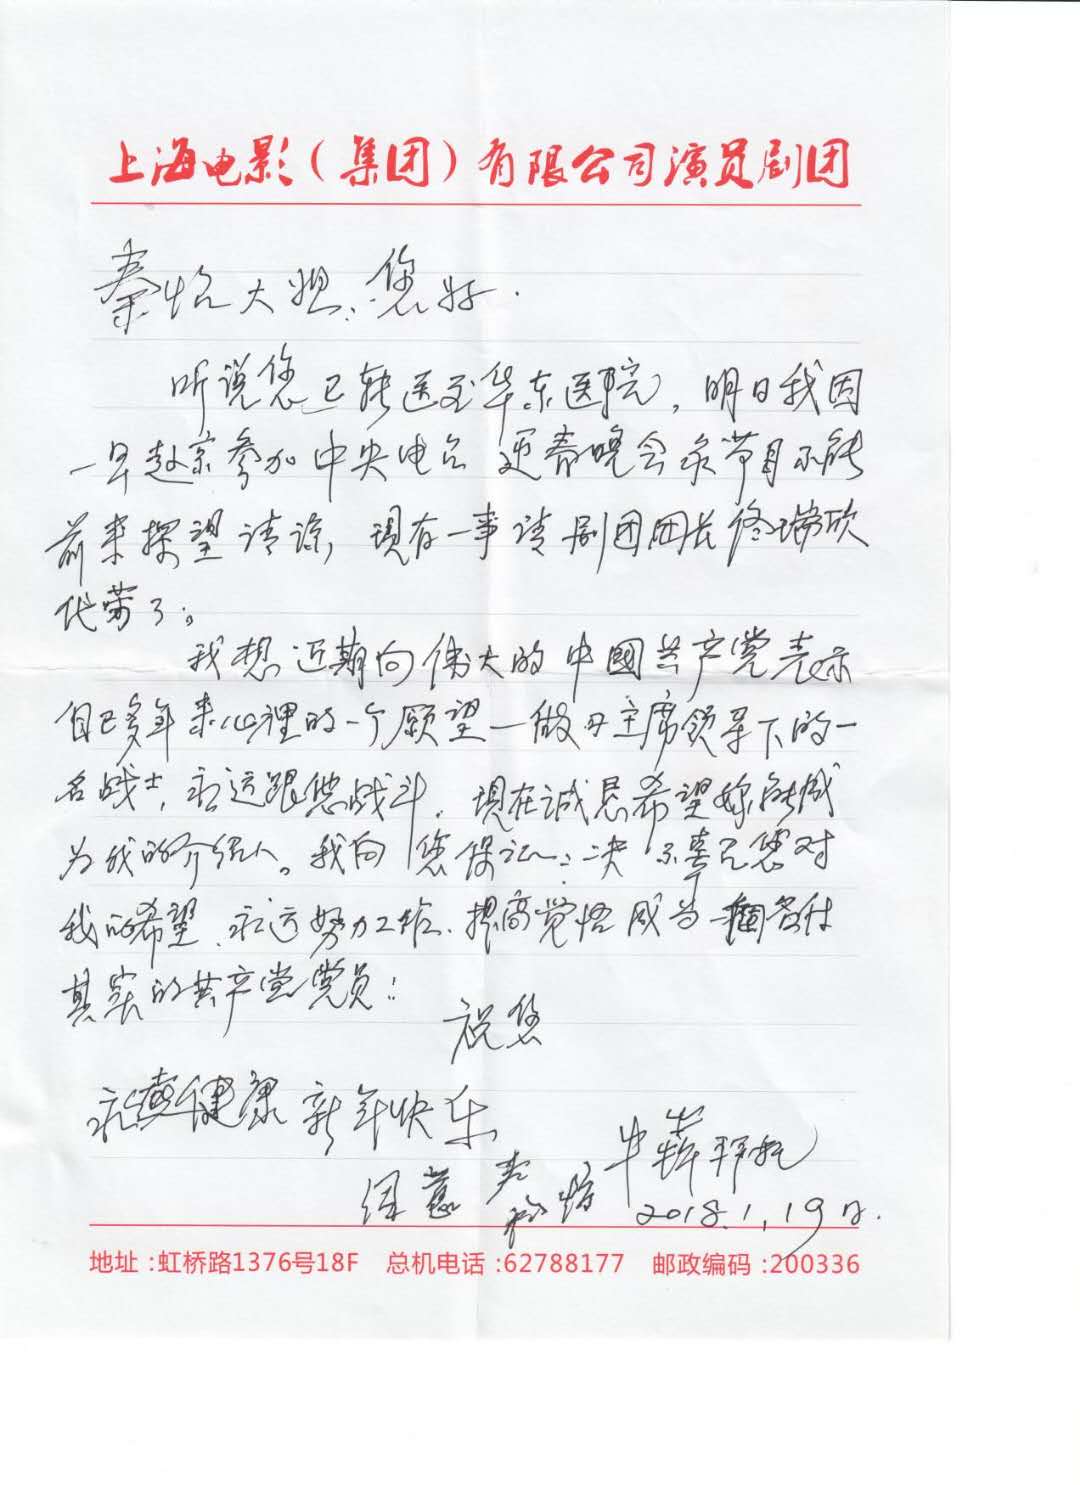 上海电影（集团）有限公司演员剧团
秦怡大姐：您好.
听说您已转送至华东医院，明日我因
一早赴京参加中央电台迎春晚会录节目不能
前来探望请谅，现有一事请剧团团长佟瑞欣
代劳了。
我想近期向伟大的中國共产党表示
自己多年来心裡的一个愿望—做毛主席领导下的一
名战士，永远跟您战斗，现在诚恳希望妳能成
为我的介绍人。我向您保证：决不辜负您对
我的希望、永远努力工作、提高觉悟成为一個名付
其实的共产党党员！
祝您
永远健康 新年快乐
牛犇拜托
2018.1.19日.
地址：虹桥路1376号18F 总机电话：62788177 邮政编码：200336